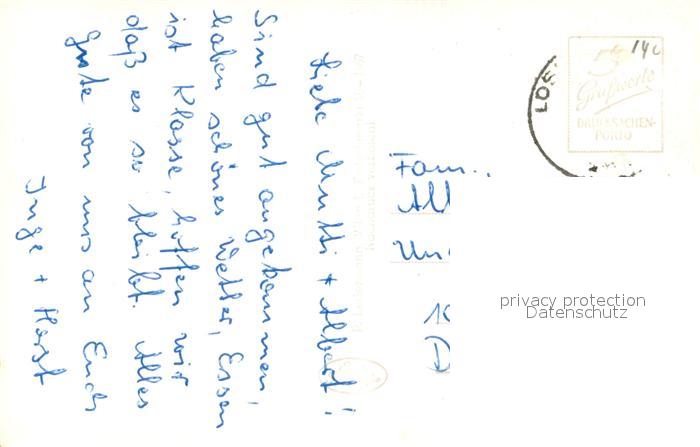 Liebe Mutti + Albert!
Sind gut angekommen,
haben schönes Wetter, Essen
ist Klasse, hoffen wir
daß es so bleibt. Alles
gute von uns an Euch
Inge + Horst
Fam.
Al
Un
1
D
LOS
5 Grußworte
DRUCKSACHEN-
PORTO
privacy protection
Datenschutz